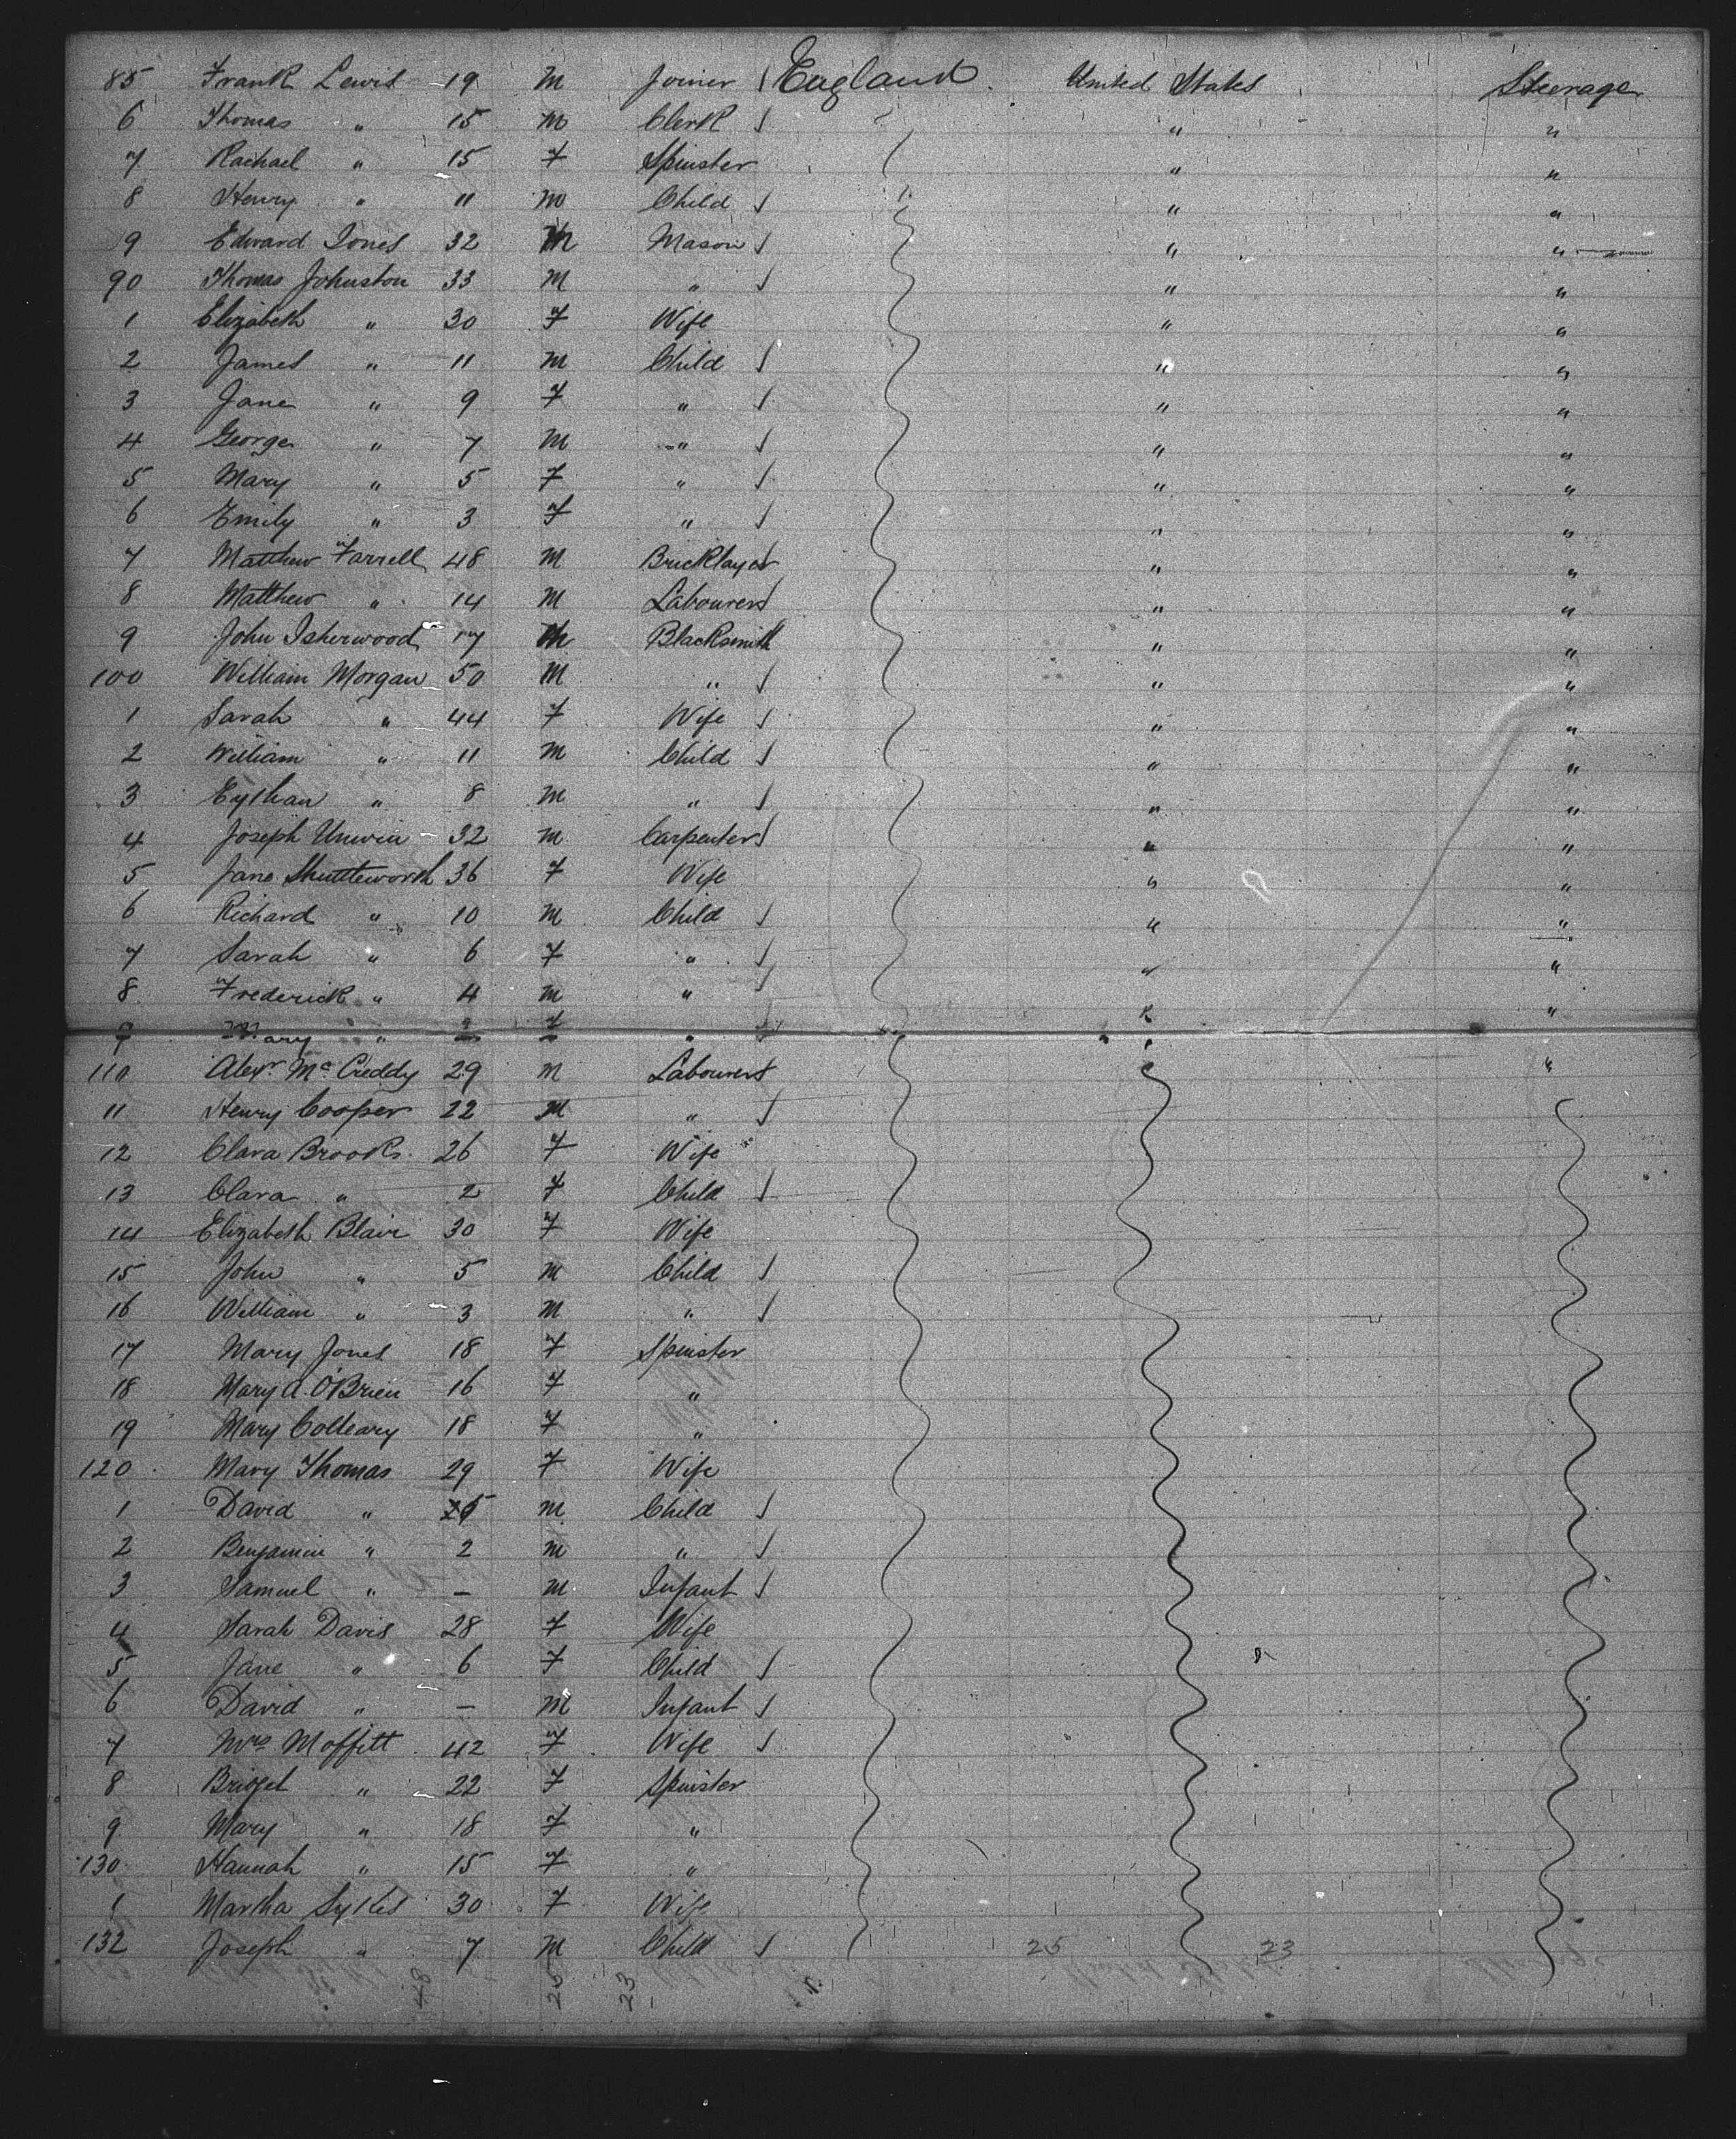 85 Frank Lewis 19 M Joiner England United States Steerage
6 Thomas " 15 M Clerk " "
7 Rachael " 15 F Spinster " "
8 Henry " 11 M Child " "
9 Edward Jones 32 M Mason " "
90 Thomas Johnston 33 M " " "
1 Elizabeth " 30 F Wife " "
2 James " 11 M Child " "
3 Jane " 9 F " " "
4 George " 7 M " " "
5 Mary " 5 F " " "
6 Emily " 3 F " " "
7 Matthew Farrell 48 M Bricklayer " "
8 Matthew " 14 M Labourer " "
9 John Isherwood 17 M Blacksmith " "
100 William Morgan 50 M " " "
1 Sarah " 44 F Wife " "
2 William " 11 M Child " "
3 " 8 M " " "
4 Joseph Unwin 32 M Carpenter " "
5 Jane Shuttleworth 36 F Wife " "
6 Richard " 10 M Child " "
7 Sarah " 6 F " " "
8 Frederick " 4 M " " "
9 Mary " F " "
110 Alexr. McCreddy 29 M Labourer " "
11 Henry Cooper 22 M "
12 Clara Brooks 26 F Wife
13 Clara " 2 F Child
14 Elizabeth Blair 30 F Wife
15 John " 5 M Child
16 William " 3 M "
17 Mary Jones 18 F Spinster
18 Mary A. O'Brien 16 F "
19 Mary Colleary 18 F "
120 Mary Thomas 29 F Wife
1 David " 5 M Child
2 Benjamin " 2 M "
3 Samuel " — M Infant
4 Sarah Davis 28 F Wife
5 Jane " 6 F Child
6 David " — M Infant
7 Mrs Moffitt 42 F Wife
8 Bridget " 22 F Spinster
9 Mary " 18 F "
130 Hannah " 15 F "
1 Martha Sykes 30 F Wife
132 Joseph " 7 M Child 25 23
48 25 23